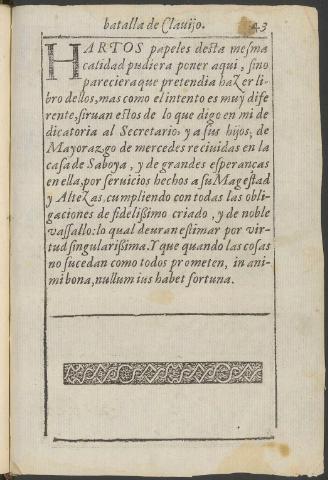 batalla de Clauijo. 43
HARTOS papeles desta mesma
calidad pudiera poner aqui, sino
pareciera que pretendia hazer li-
bro dellos, mas como el intento es muy dife
rente, siruan estos de lo que digo en mi de
dicatoria al Secretario, y a sus hijos, de
Mayorazgo de mercedes reciuidas en la
casa de Saboya, y de grandes esperanças
en ella, por seruicios hechos a su Magestad
y Altezas, cumpliendo con todas las obli-
gaciones de fidelissimo criado, y de noble
vassallo: lo qual deuran estimar por vir-
tud singularissima. Y que quando las cosas
no sucedan como todos prometen, in ani-
mi bona, nullum ius habet fortuna.